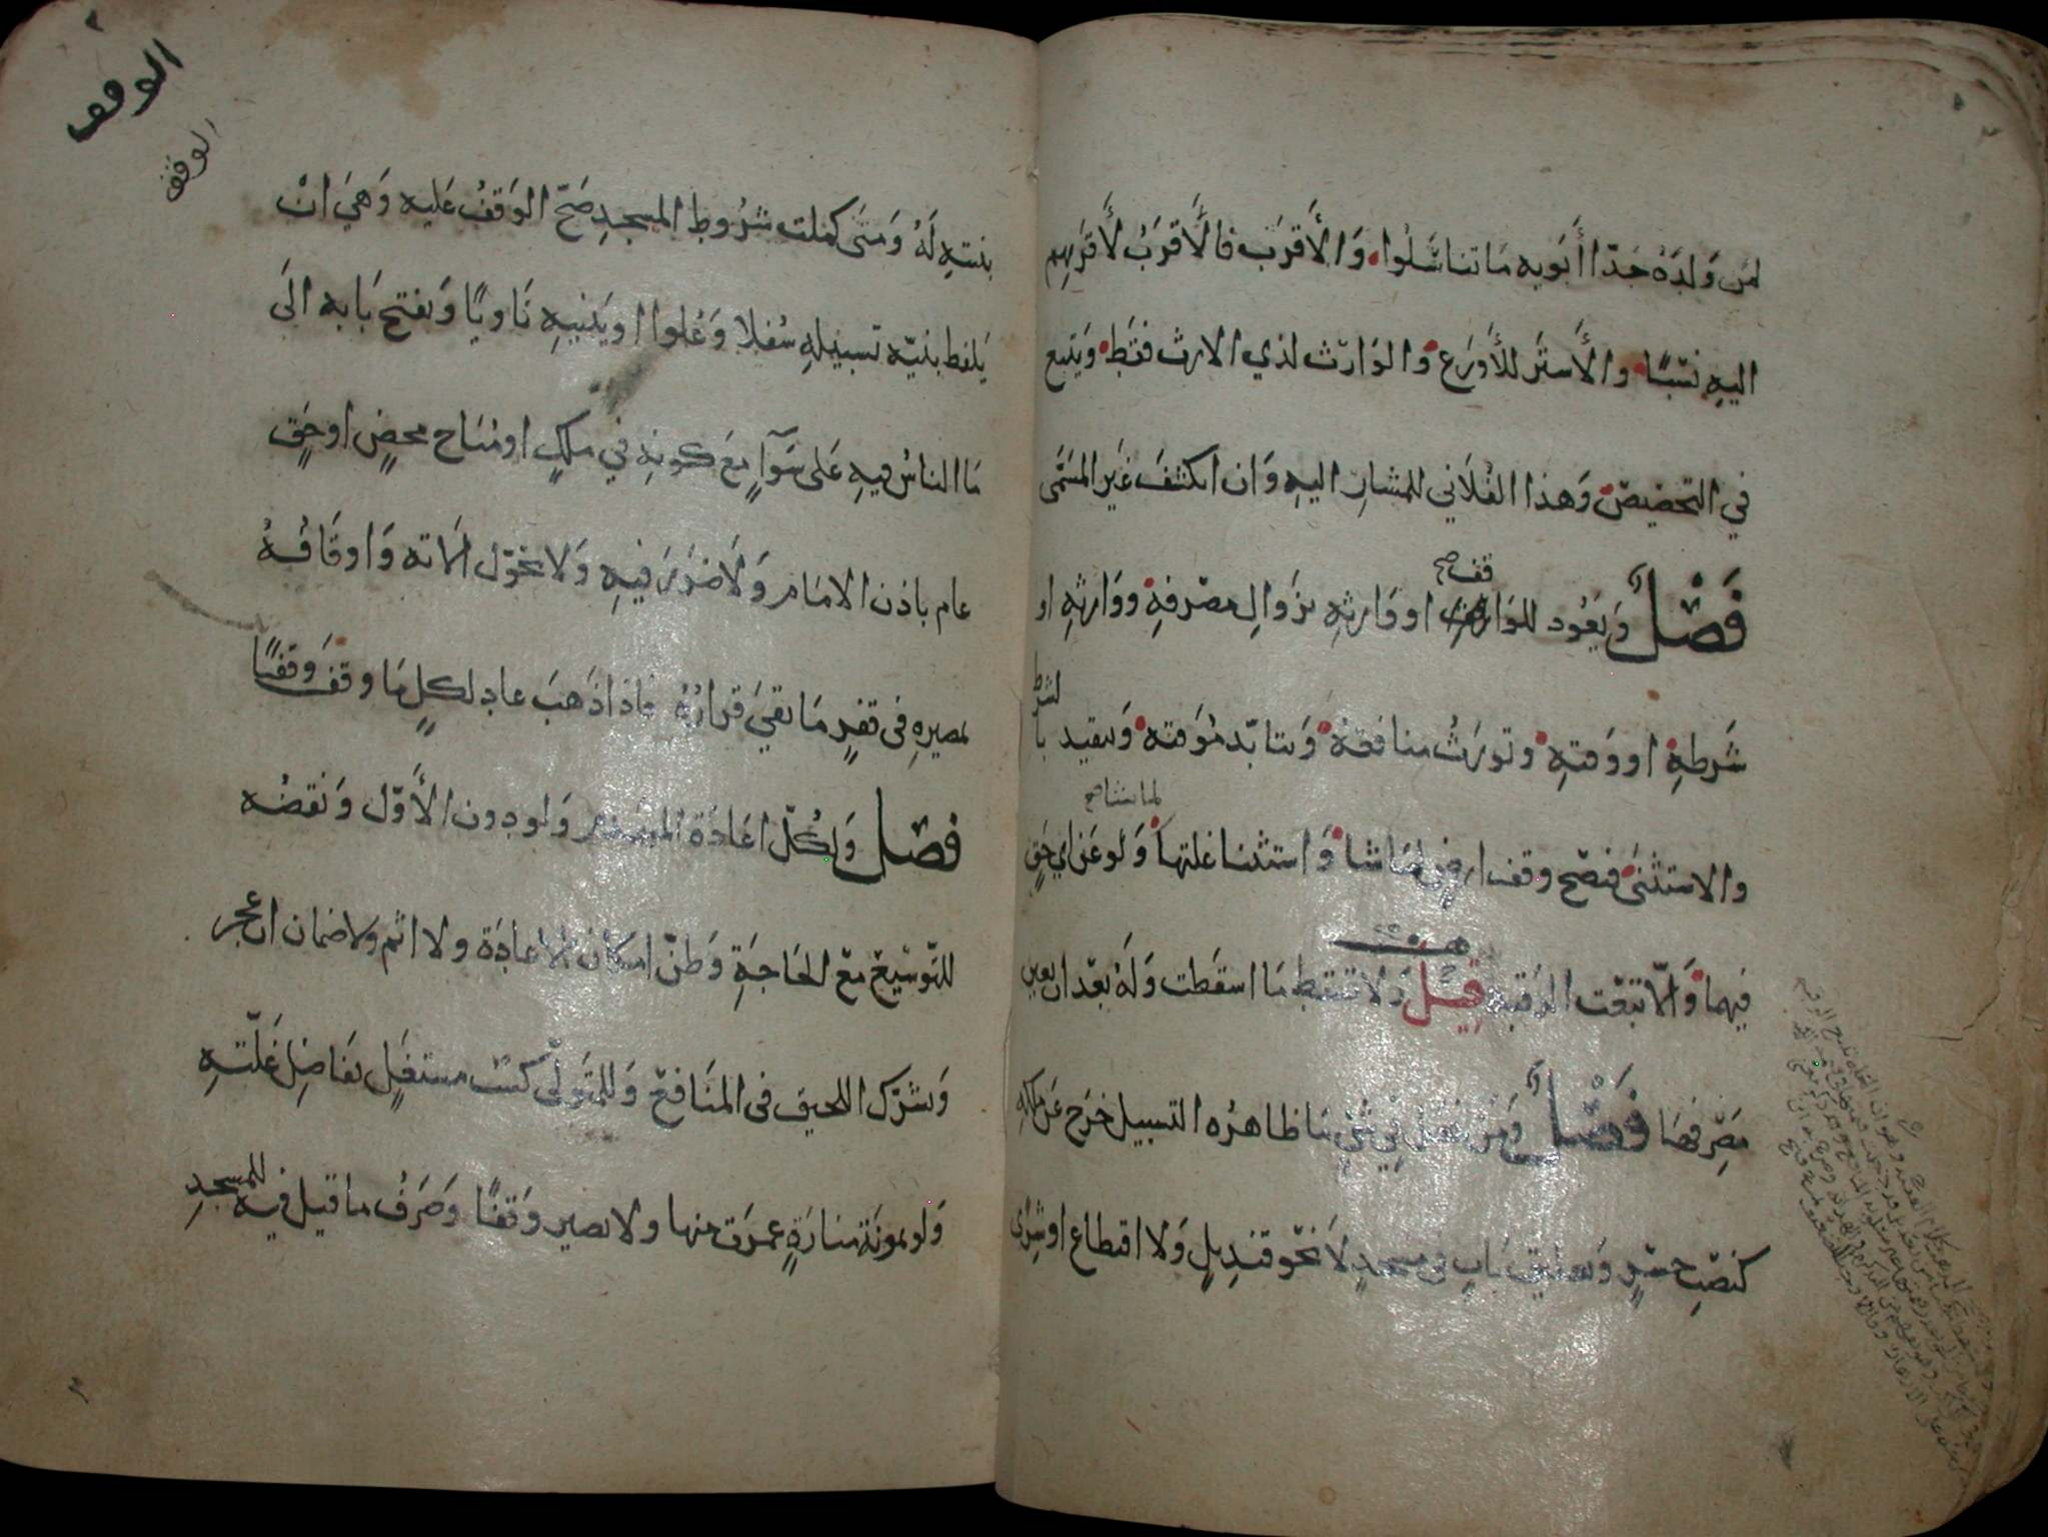 لمن وَلَدَهُ جَدّا أَبَوَيه مَا تناسَلُوا وَالأَقرَب فالأَقرَبُ لأَقرَبهم
اليهِ نسَبًا والأَستَر للأَورَع وَالوَارث لذي الارث فقَط وَيَتبع
في التحصيص وَهذا الفُلَاني للمشارِ اليهِ وَان انكشَفَ غيَر المسَمَّى
فَصْلٌ وَيَعُود للوَاقف او وَارثِه بزَوالِ مصرفهِ وَوَارثهِ او
قف صح
شَرطهِ او وَقتهِ وتورَثُ منافعه وَيتأبّد مُؤَقته وَيتقيد بالشرط
والاستثنى فيَصح وقف ارضٍ لمَا شا وَاستثنا غلتها وَلو عَن اي حَقٍ
لما شا صح
فيهما وَالّا تبعَت الرقبة قيْل وَلا تسقط مَا اسقَطت وَلهُ بَعّد ان يعين
مَصرِفهَا فَصْلٌ وَمَن فعَل في شي مَا ظاهرُه التسبيل خَرَج عَن ملكه
كنَصْبِ جسْرٍ وَتعليق بَابٍ في مسجدٍ لَا نحو قنديلٍ وَلا اقتطاع او شِرَاى
الوقف
الوقف
بنيتهِ لَهُ وَمتَى كملت شرُوط المسجدِ صَحّ الوَقفُ عَليه وَهيَ انْ
يَلفظ بنيّه تسبيلهِ سُفلا وَعُلوا او يَبْنيهِ نَاويًا وَيفتح بَابه الَى
مَا الناسُ فيهِ عَلى سَوَآءٍ مَع كونهِ في ملكٍ او مبَاح محضٍ او حَقٍ
عام باذن الامَام وَلَا ضرَرَ فيهِ وَلا تحَوّل الَاته وَاوقَافُهُ
لمصيرهِ فى قفرٍ مَا بقيَ قرارُهُ فاذا ذَهبَ عاد لكلٍ مَا وقفَ وقفًا
فصل وَلكُلّ اعَادَة المنهدم وَلو دون الأَوّل وَنقضُه
للتّوسيع مَع الحَاجَةِ وَظنّ امكان الاعادَة ولا اثم ولا ضمان ان عجز
وَيشرَك اللحيق فى المنَافع وَللمتَولّى كسْب مستغَلٍ بفَاضِل غلّتهِ
وَلو بموَنة منارَةٍ عمرَت منها ولا يصير وَقفًا وَصَرفُ ما قيل فيه للمسجدِ